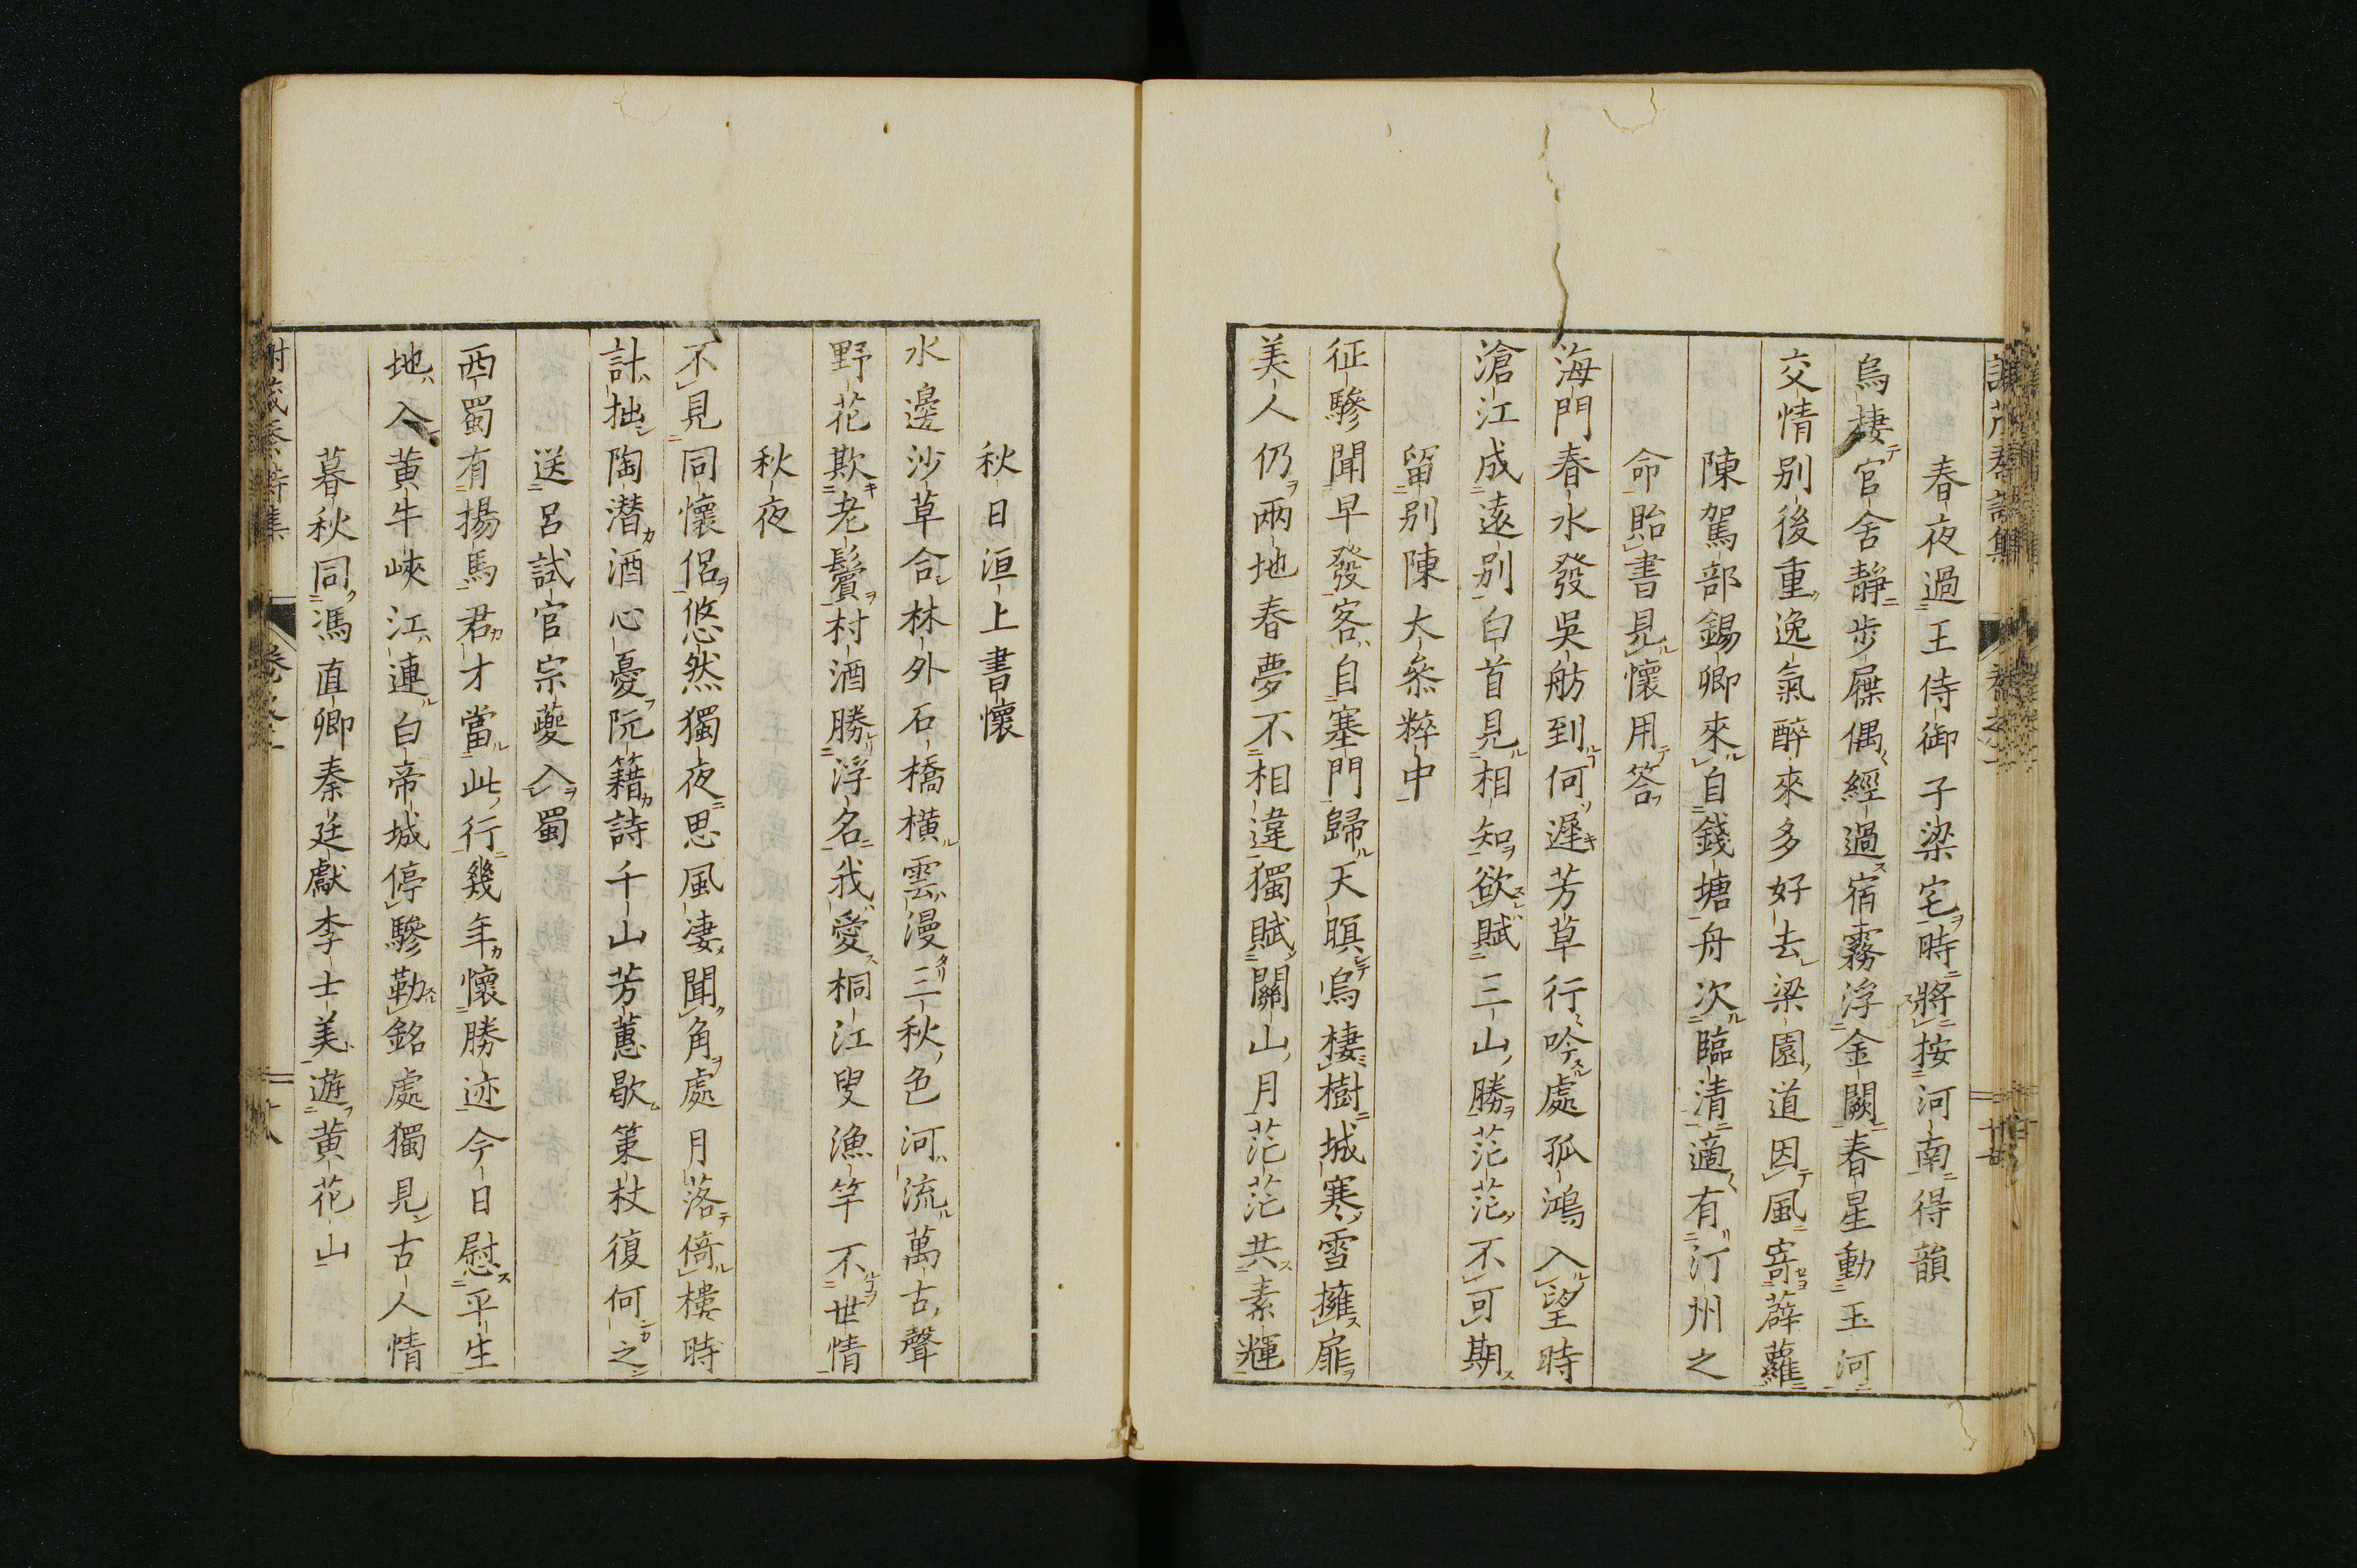 春夜過王侍御子梁宅時將按河南得韻
烏棲官舍靜步屧偶經過宿霧浮金闕春星動玉河
交情别後重逸氣醉來多好去梁園道因風寄薜蘿
陳駕部錫卿來自錢塘舟次臨清適有汀州之
命貽書見懷用答
海門春水發吳舫到何遲芳草行吟處孤鴻入望時
滄江成遠别白首見相知欲賦三山勝茫茫不可期
留别陳大叅粹中
征驂聞早發客自塞門歸天暝烏棲樹城寒雪擁扉
美人仍兩地春夢不相違獨賦關山月茫茫共素輝
秋日洹上書懷
水邊沙草合林外石橋橫雲漫三秋色河流萬古聲
野花欺老鬢村酒勝浮名我愛桐江叟漁竿不世情
秋夜
不見同懷侶悠然獨夜思風凄聞角處月落倚樓時
計拙陶潜酒心憂阮籍詩千山芳蕙歇策杖復何之
送呂試官宗夔入蜀
西蜀有揚馬君才當此行幾年懷勝迹今日慰平生
地入黃牛峽江連白帝城停驂勒銘處獨見古人情
暮秋同馮直卿秦廷獻李士美遊黃花山